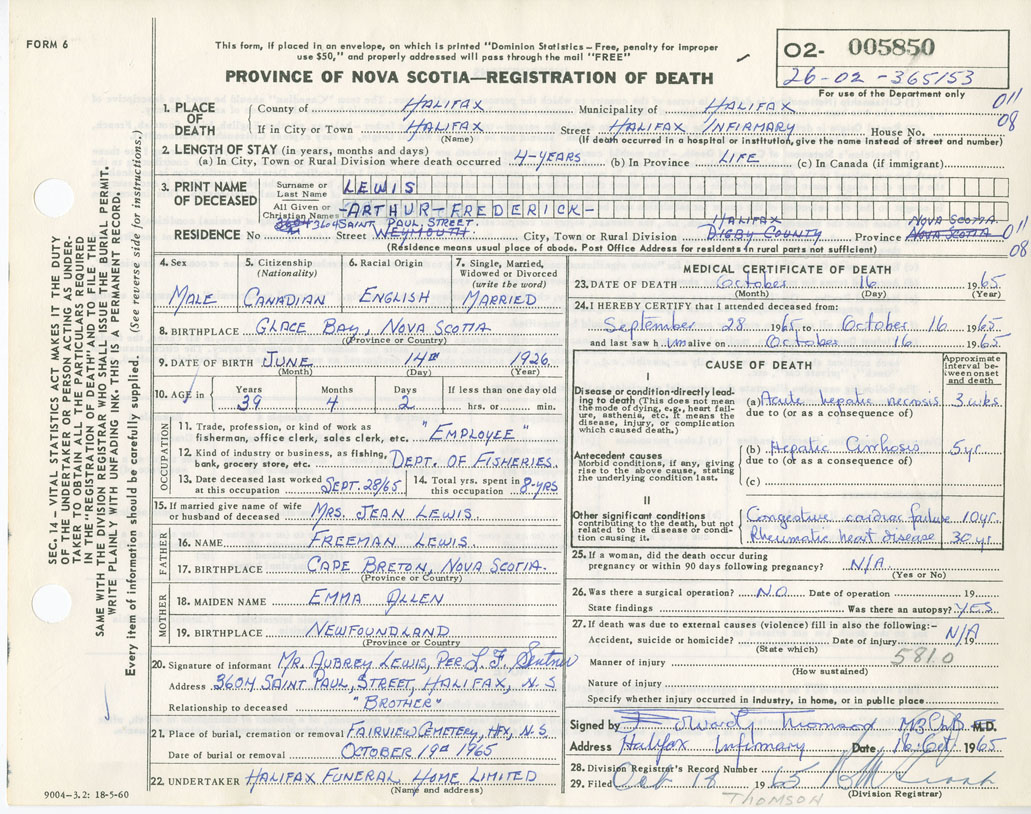 FORM 6
This form, if placed in an envelope, on which is printed "Dominion Statistics – Free, penalty for improper
use $50," and properly addressed will pass through the mail "FREE"
PROVINCE OF NOVA SCOTIA—REGISTRATION OF DEATH
O2- 005850
26-02-365153
For use of the Department only
011
08
SEC. 14 – VITAL STATISTICS ACT MAKES IT THE DUTY
OF THE UNDERTAKER OR PERSON ACTING AS UNDER-
TAKER TO OBTAIN ALL THE PARTICULARS REQUIRED
IN THE "REGISTRATION OF DEATH" AND TO FILE THE
SAME WITH THE DIVISION REGISTRAR WHO SHALL ISSUE THE BURIAL PERMIT.
WRITE PLAINLY WITH UNFADING INK. THIS IS A PERMANENT RECORD.
Every item of information should be carefully supplied. (See reverse side for instructions.)
1. PLACE OF DEATH County of HALIFAX Municipality of HALIFAX
If in City or Town HALIFAX Street HALIFAX INFIRMARY House No.
(Name) (If death occurred in a hospital or institution, give the name instead of street and number)
2. LENGTH OF STAY (in years, months and days)
(a) In City, Town or Rural Division where death occurred 4-YEARS (b) In Province LIFE (c) In Canada (if immigrant)
3. PRINT NAME OF DECEASED Surname or Last Name LEWIS
All Given or Christian Names -ARTHUR-FREDERICK-
3604 SAINT PAUL, STREET. HALIFAX NOVA SCOTIA.
RESIDENCE No Street WEYMOUTH. City, Town or Rural Division DIGBY COUNTY Province NOVA SCOTIA. 011
08
(Residence means usual place of abode. Post Office Address for residents in rural parts not sufficient)
4. Sex MALE
5. Citizenship (Nationality) CANADIAN
6. Racial Origin ENGLISH
7. Single, Married, Widowed or Divorced (write the word) MARRIED
8. BIRTHPLACE GLACE BAY, NOVA SCOTIA
(Province or Country)
9. DATE OF BIRTH JUNE 14TH 1926
(Month) (Day) (Year)
10. AGE in Years 39 Months 4 Days 2 If less than one day old hrs. or min.
OCCUPATION
11. Trade, profession, or kind of work as fisherman, office clerk, sales clerk, etc. "EMPLOYEE"
12. Kind of industry or business, as fishing, bank, grocery store, etc. DEPT. OF FISHERIES.
13. Date deceased last worked at this occupation SEPT. 28/65 14. Total yrs. spent in this occupation 8-YRS
15. If married give name of wife or husband of deceased MRS. JEAN LEWIS.
FATHER
16. NAME FREEMAN LEWIS.
17. BIRTHPLACE CAPE BRETON, NOVA SCOTIA.
(Province or Country)
MOTHER
18. MAIDEN NAME EMMA ALLEN
19. BIRTHPLACE NEWFOUNDLAND
(Province or Country)
20. Signature of informant MR. AUBREY LEWIS, PER L. F.
Address 3604 SAINT PAUL, STREET, HALIFAX, N.S
Relationship to deceased "BROTHER"
21. Place of burial, cremation or removal FAIRVIEW CEMETERY, HFX, N.S.
Date of burial or removal OCTOBER 19TH 1965
22. UNDERTAKER HALIFAX FUNERAL HOME LIMITED
(Name and address)
9004–3.2: 18-5-60
MEDICAL CERTIFICATE OF DEATH
23. DATE OF DEATH October 16 1965
(Month) (Day) (Year)
24. I HEREBY CERTIFY that I attended deceased from:
September 28 1965 to October 16 1965
and last saw him alive on October 16 1965.
CAUSE OF DEATH
Approximate interval between onset and death
I
Disease or condition directly leading to death (This does not mean the mode of dying, e.g., heart failure, asthenia, etc. It means the disease, injury, or complication which caused death.)
(a) Acute hepatic necrosis 3 wks
due to (or as a consequence of)
Antecedent causes
Morbid conditions, if any, giving rise to the above cause, stating the underlying condition last.
(b) Hepatic Cirrhosis 5yr
due to (or as a consequence of)
(c)
II
Other significant conditions contributing to the death, but not related to the disease or condition causing it.
Congestive cardiac failure 10yr.
Rheumatic heart disease 30yr
25. If a woman, did the death occur during pregnancy or within 90 days following pregnancy? N/A.
(Yes or No)
26. Was there a surgical operation? NO Date of operation 19
State findings Was there an autopsy? YES
27. If death was due to external causes (violence) fill in also the following:–
Accident, suicide or homicide? Date of injury N/A 19
(State which) 5810
Manner of injury
(How sustained)
Nature of injury
Specify whether injury occurred in industry, in home, or in public place
Signed by Edward Thomson M.B. Ch.B. M.D.
Address Halifax Infirmary Date, 16 Oct 1965
28. Division Registrar's Record Number
29. Filed Oct 18 1965
(Division Registrar)
THOMSON